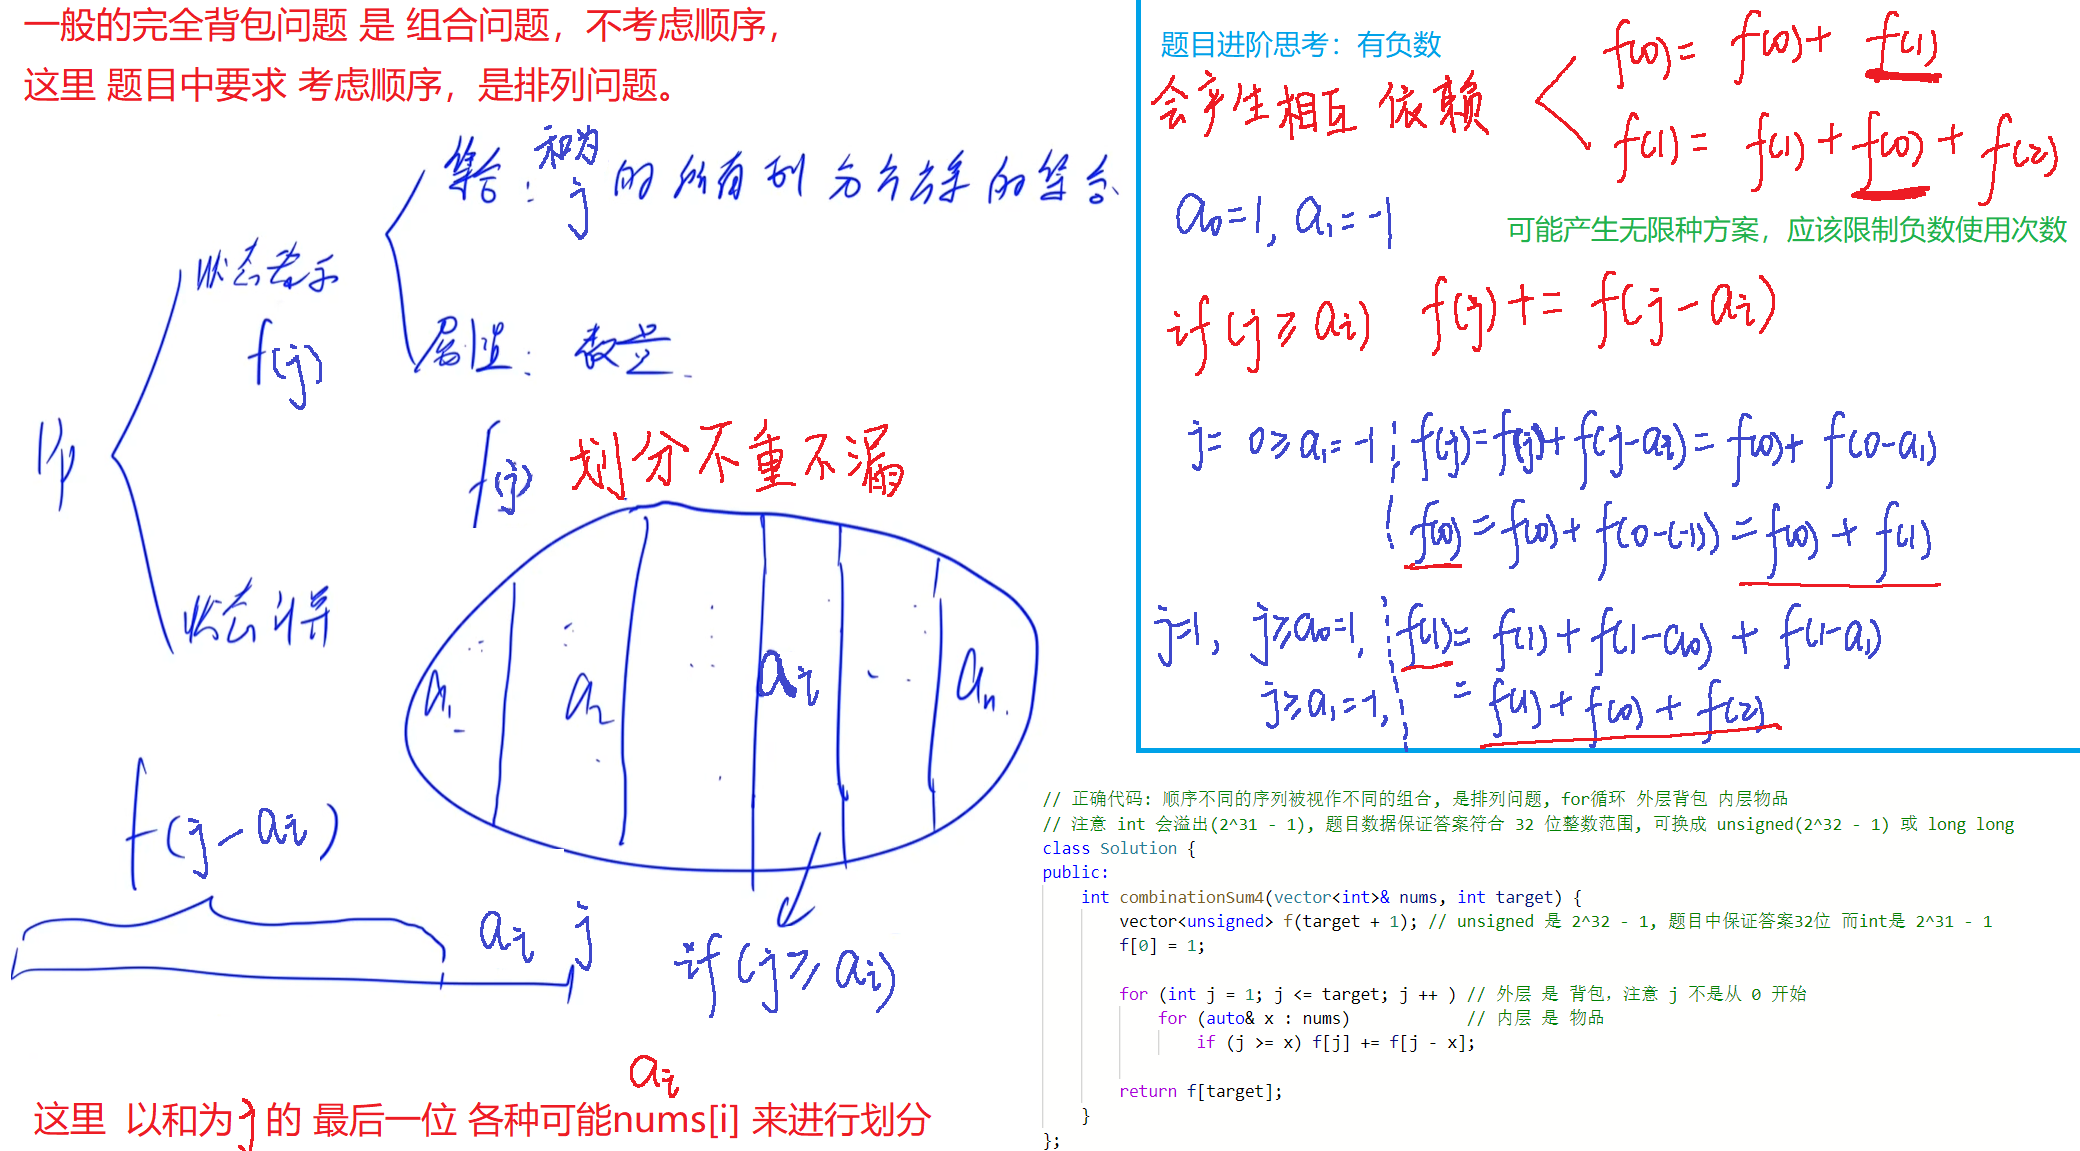 一般的完全背包问题 是 组合问题，不考虑顺序，
这里 题目中要求 考虑顺序，是排列问题。
集合：和为 j 的所有列方案的集合
状态表示
f(j)
属性：数量.
Dp
f(j) 划分不重不漏
状态计算
a₁ a₂ aᵢ aₙ
f(j-aᵢ)
aᵢ j
if(j≥aᵢ)
aᵢ
这里 以和为 j 的 最后一位 各种可能nums[i] 来进行划分
题目进阶思考：有负数
会产生相互依赖
f(0)= f(0)+ f(1)
f(1)= f(1)+f(0)+ f(2)
a₀=1, a₁=-1
可能产生无限种方案，应该限制负数使用次数
if(j≥aᵢ) f(j)+= f(j-aᵢ)
j= 0≥a₁=-1 f(j)=f(j)+f(j-aᵢ)=f(0)+ f(0-a₁)
f(0)=f(0)+f(0-(-1))=f(0)+f(1)
j=1, j≥a₀=1, f(1)= f(1)+f(1-a₀)+ f(1-a₁)
j≥a₁=-1, = f(1)+f(0)+f(2)
// 正确代码: 顺序不同的序列被视作不同的组合, 是排列问题, for循环 外层背包 内层物品
// 注意 int 会溢出(2^31 - 1), 题目数据保证答案符合 32 位整数范围, 可换成 unsigned(2^32 - 1) 或 long long
class Solution {
public:
int combinationSum4(vector<int>& nums, int target) {
vector<unsigned> f(target + 1); // unsigned 是 2^32 - 1, 题目中保证答案32位 而int是 2^31 - 1
f[0] = 1;
for (int j = 1; j <= target; j ++ ) // 外层 是 背包，注意 j 不是从 0 开始
for (auto& x : nums) // 内层 是 物品
if (j >= x) f[j] += f[j - x];
return f[target];
}
};